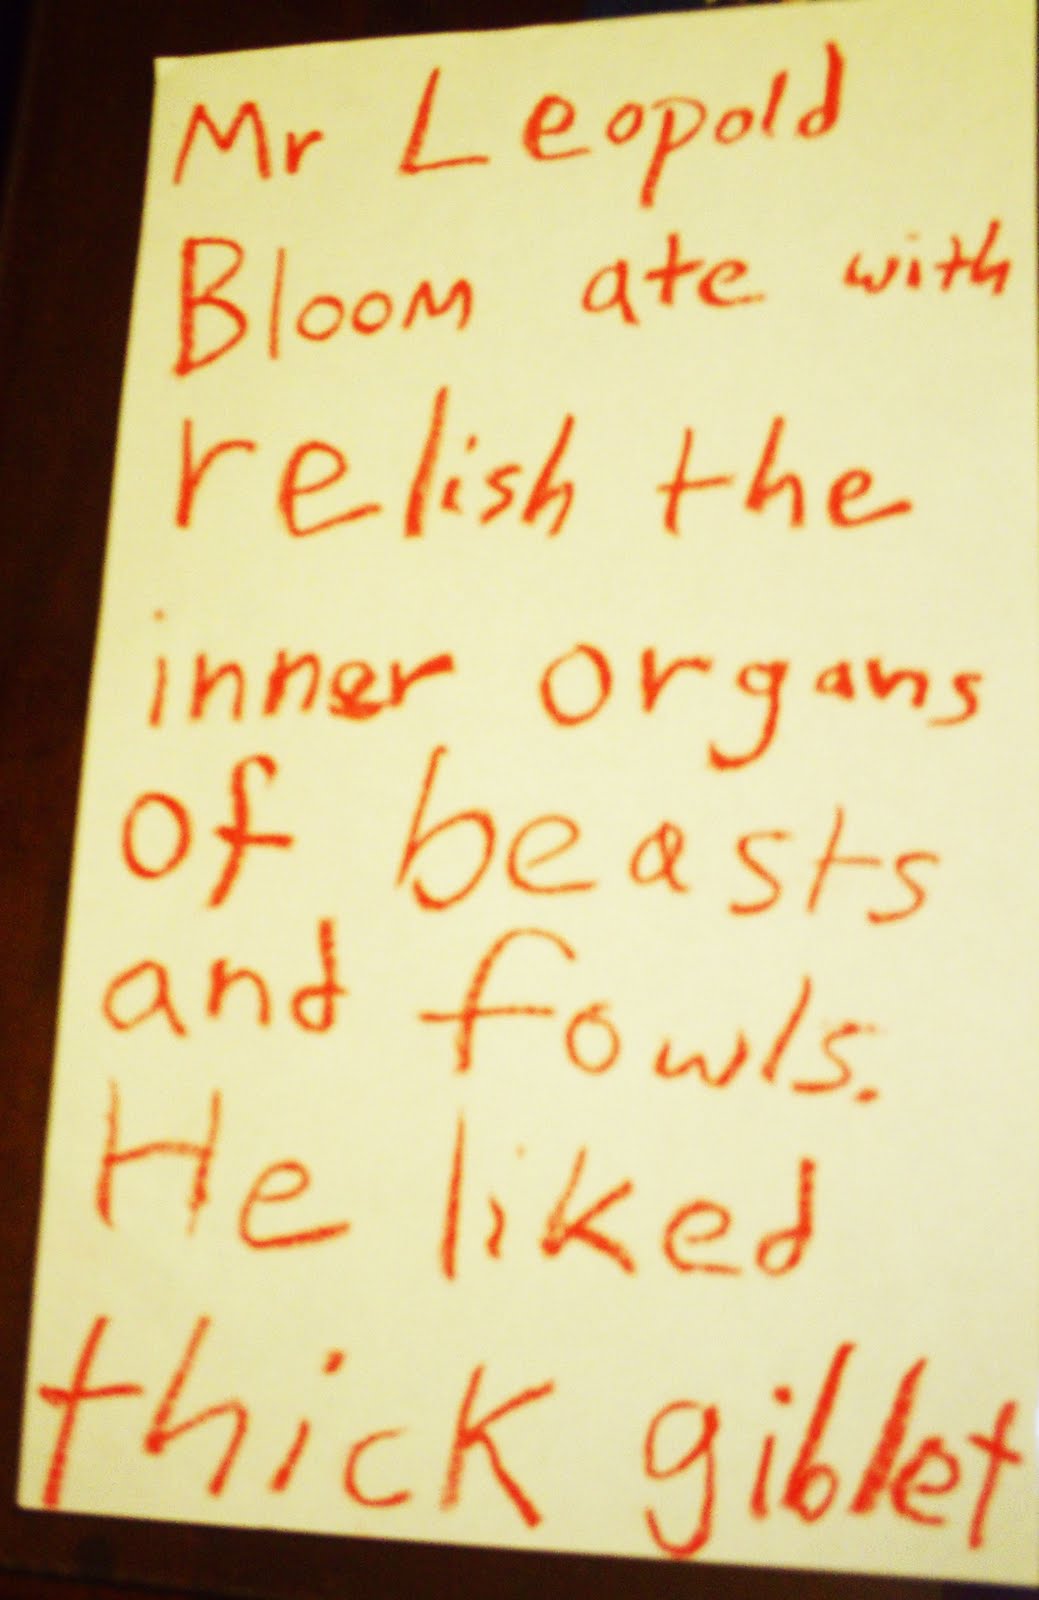 Mr Leopold
Bloom ate with
relish the
inner organs
of beasts
and fowls.
He liked
thick giblet